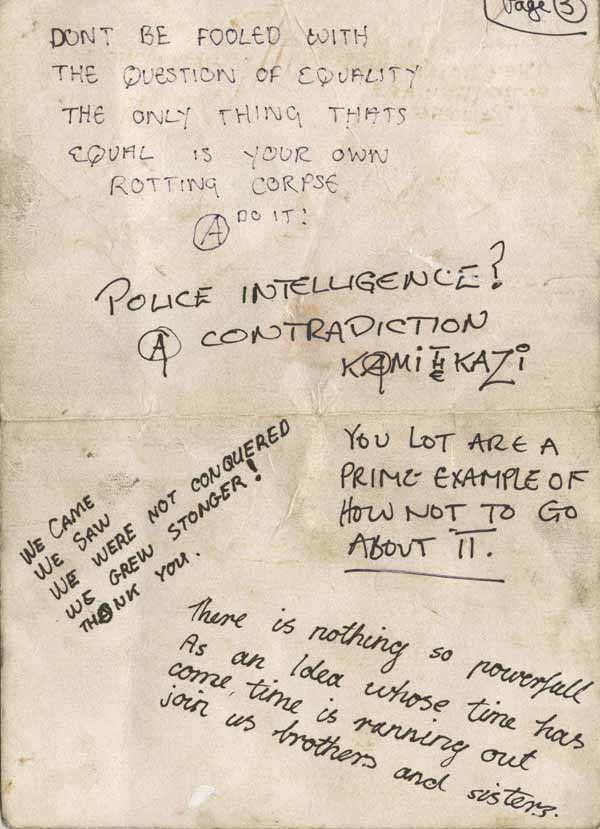 Page 3
DONT BE FOOLED WITH
THE QUESTION OF EQUALITY
THE ONLY THING THATS
EQUAL IS YOUR OWN
ROTTING CORPSE
Ⓐ DO IT!
POLICE INTELLIGENCE?
Ⓐ CONTRADICTION
KAMI THE KAZI
YOU LOT ARE A
PRIME EXAMPLE OF
HOW NOT TO GO
ABOUT IT.
WE CAME
WE SAW
WE WERE NOT CONQUERED
WE GREW STONGER!
THANK YOU.
There is nothing so powerfull
As an Idea whose time has
come, time is running out
join us brothers and sisters.